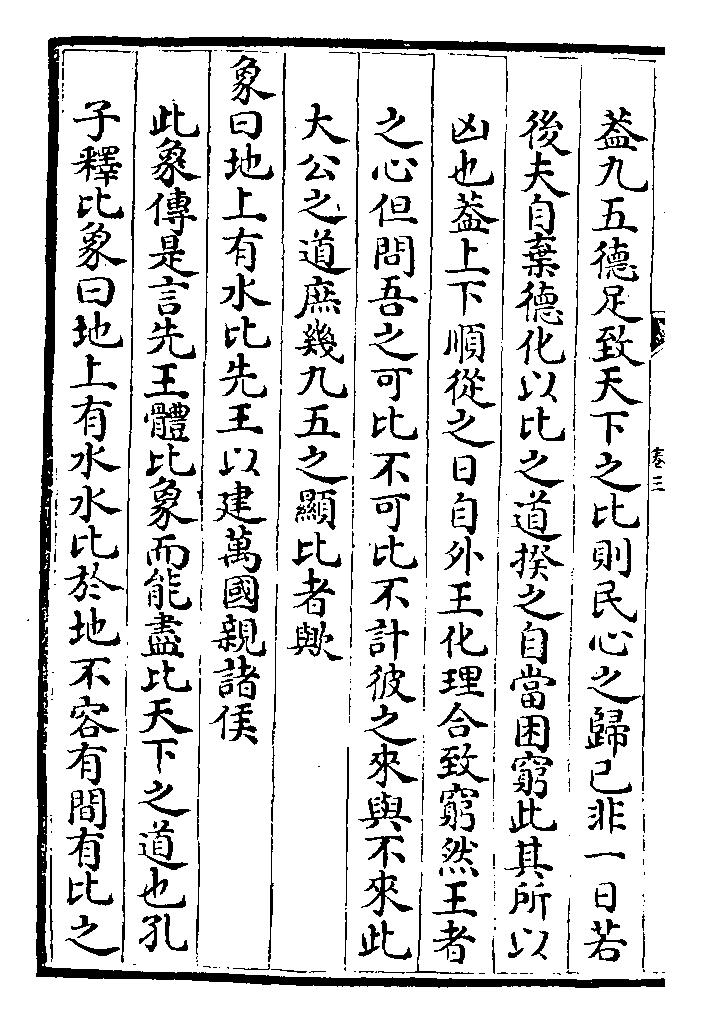 葢九五德足致天下之比則民心之歸已非一日若
後夫自棄德化以比之道揆之自當困窮此其所以
凶也葢上下順從之日自外王化理合致窮然王者
之心但問吾之可比不可比不計彼之來與不來此
大公之道庶幾九五之顯比者歟
象曰地上有水比先王以建萬國親諸侯
此象傳是言先王體比象而能盡比天下之道也孔
子釋比象曰地上有水水比於地不容有間有比之
卷三